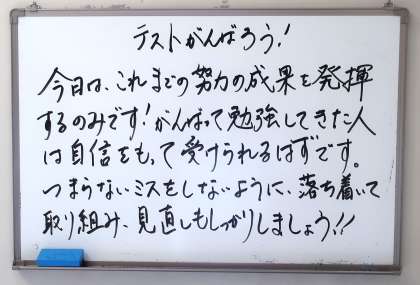 テストがんばろう!
今日は、これまでの努力の成果を発揮
するのみです!がんばって勉強してきた人
は自信をもって受けられるはずです。
つまらないミスをしないように、落ち着いて
取り組み、見直しもしっかりしましょう!!